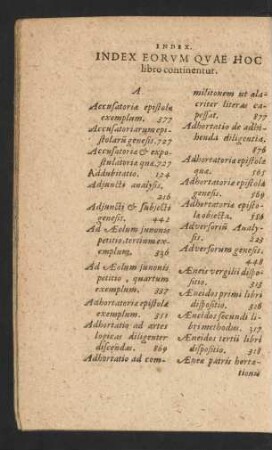 INDEX.
INDEX EORVM QVAE HOC
libro continentur.
A
Accusatoriæ epistolæ
exemplum. 577
Accusatoriarum epi-
stolarū genesis. 727
Accusatoria & expo-
stulatoria quæ. 727
Addubitatio. 124
Adjuncti analysis.
216
Adjuncti & subjecti
genesis. 442
Ad Æolum junonis
petitio, tertium ex-
emplum. 336
Ad Æolum junonis
petitio, quartum
exemplum. 337
Adhortatoriæ epistolæ
exemplum. 551
Adhortatio ad artes
logicas diligenter
discendas. 869
Adhortatio ad com-
militonem ut ala-
criter literas ca-
pessat. 877
Adhortatio de adhi-
benda diligentia.
876
Adhortatoria epistola
quæ. 565
Adhortatoria epistolæ
genesis. 569
Adhortatoria episto-
la objecta. 586
Adversarii Analy-
sis. 223
Adversorum genesis.
448
Æneis vergilii dispo-
sitio. 315
Æneidos primi libri
dispositio. 316
Æneidos secundi li-
bri methodus. 317
Æneidos tertii libri
dispositio. 318
Æneæ patris horta-
tionis